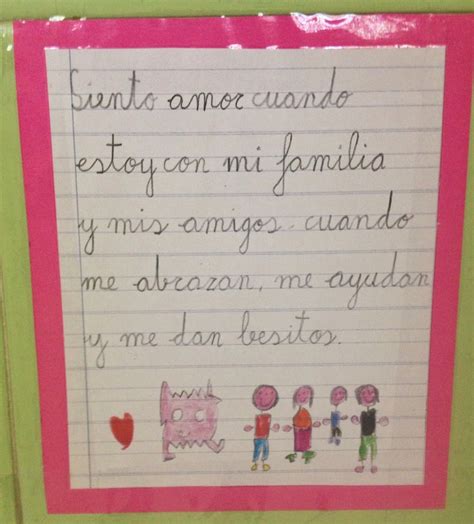 Siento amor cuando
estoy con mi familia
y mis amigos. cuando
me abrazan, me ayudan
y me dan besitos.